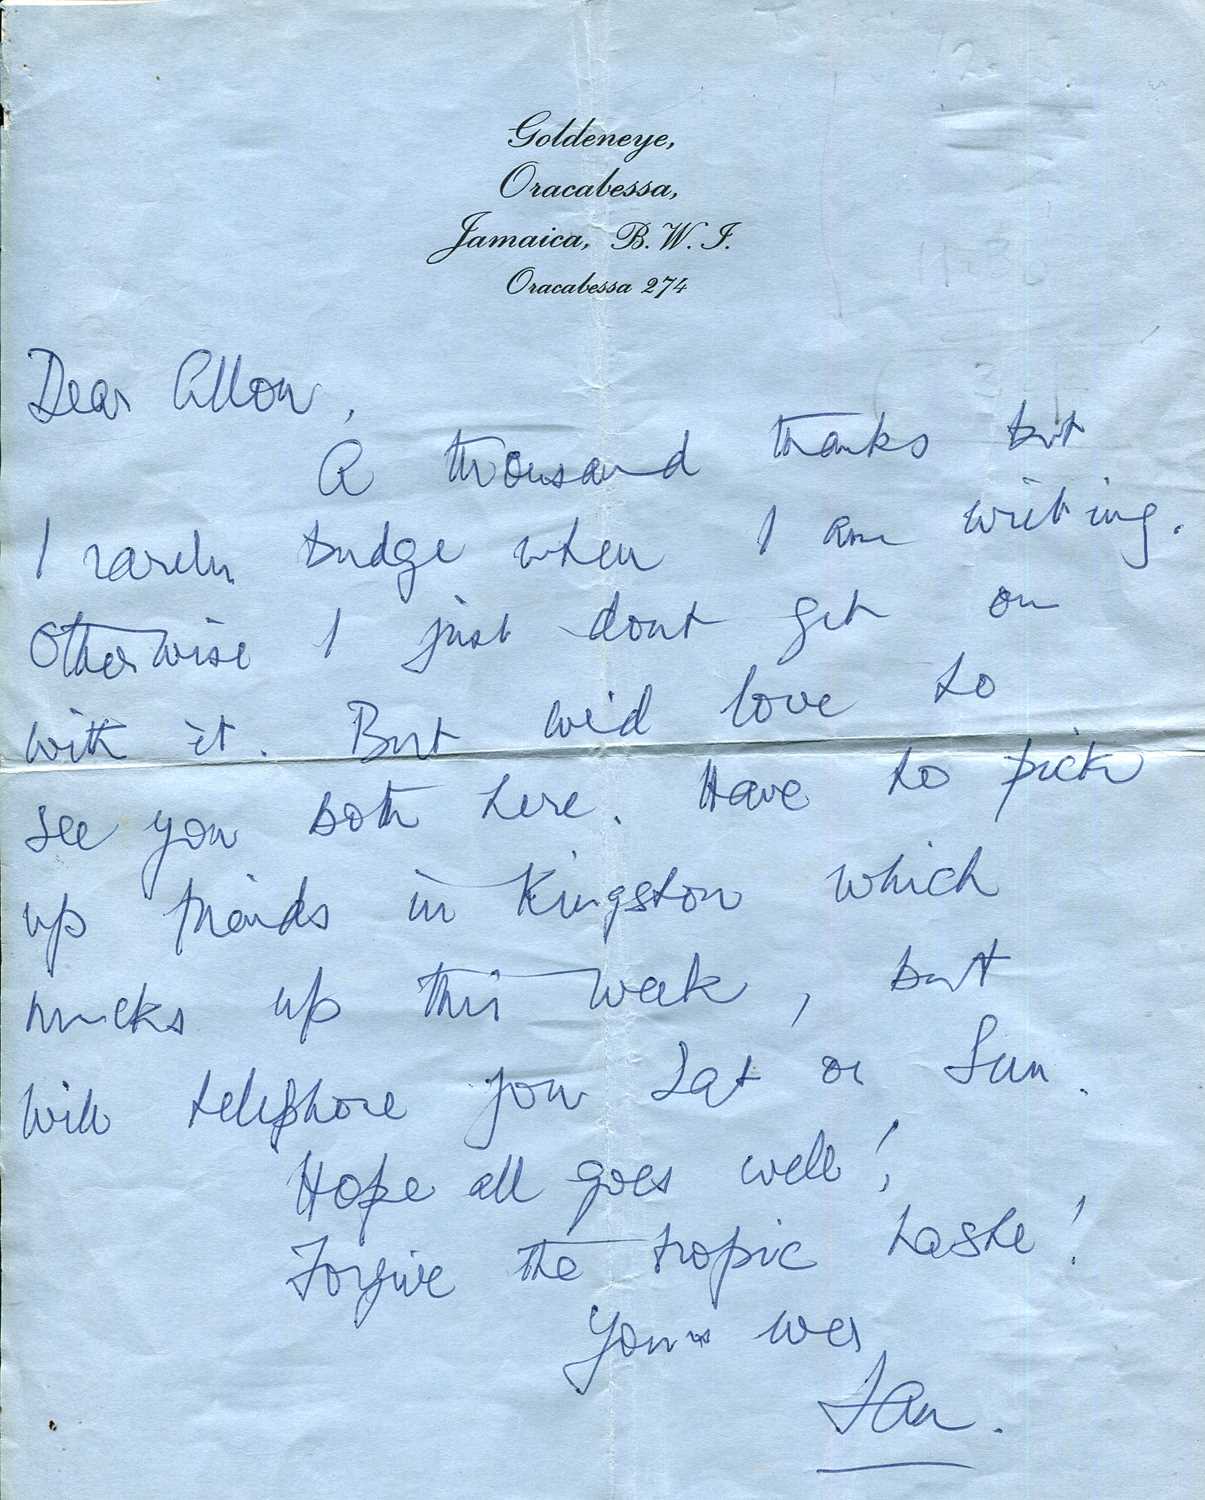 Goldeneye,
Oracabessa,
Jamaica, B.W.I.
Oracabessa 274
Dear Allon,
A thousand thanks but
I rarely budge when I am writing.
Otherwise I just dont get on
with it. But we'd love to
see you both here. Have to pick
up friends in Kingston which
mucks up this week, but
will telephone you Sat or Sun.
Hope all goes well!
Forgive the tropic haste!
Yours
Ian.